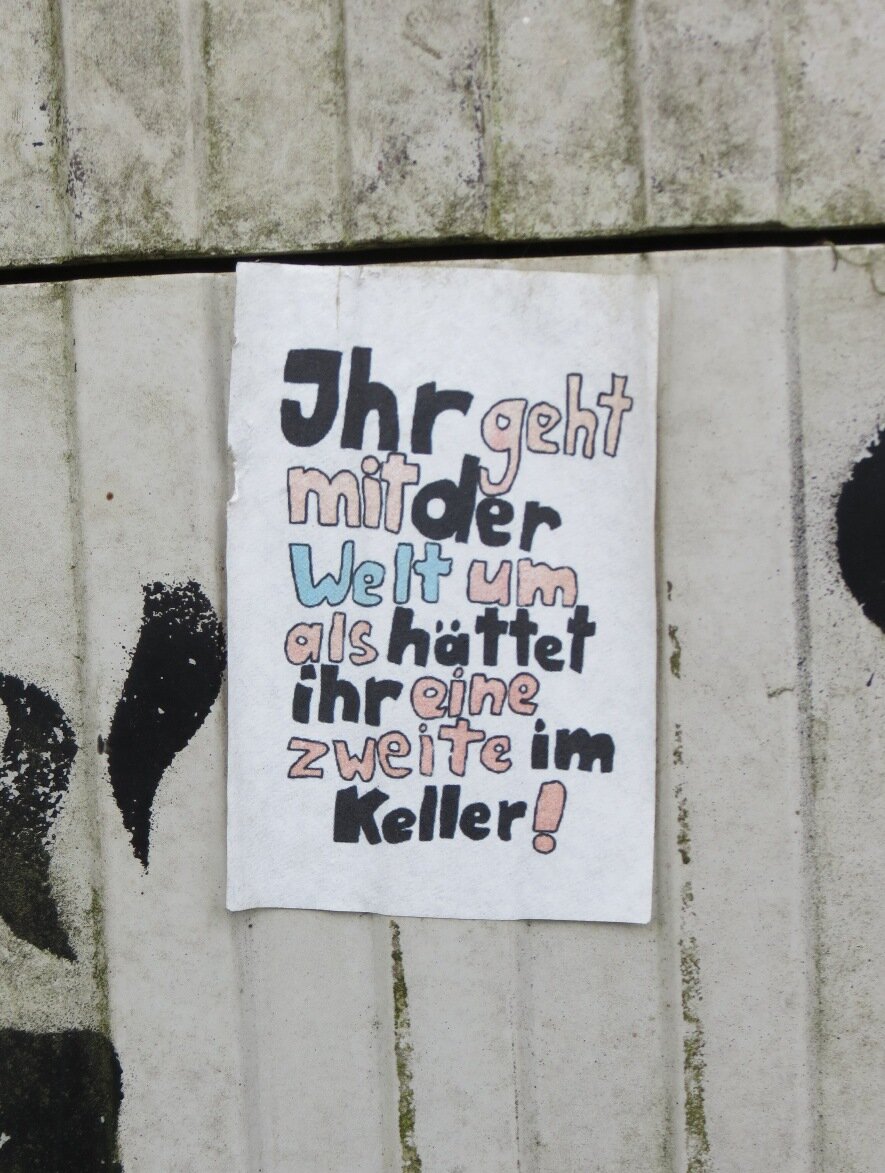 Ihr geht
mit der
Welt um
als hättet
ihr eine
zweite im
Keller!